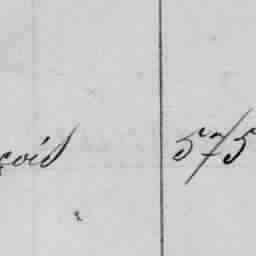 çois 575